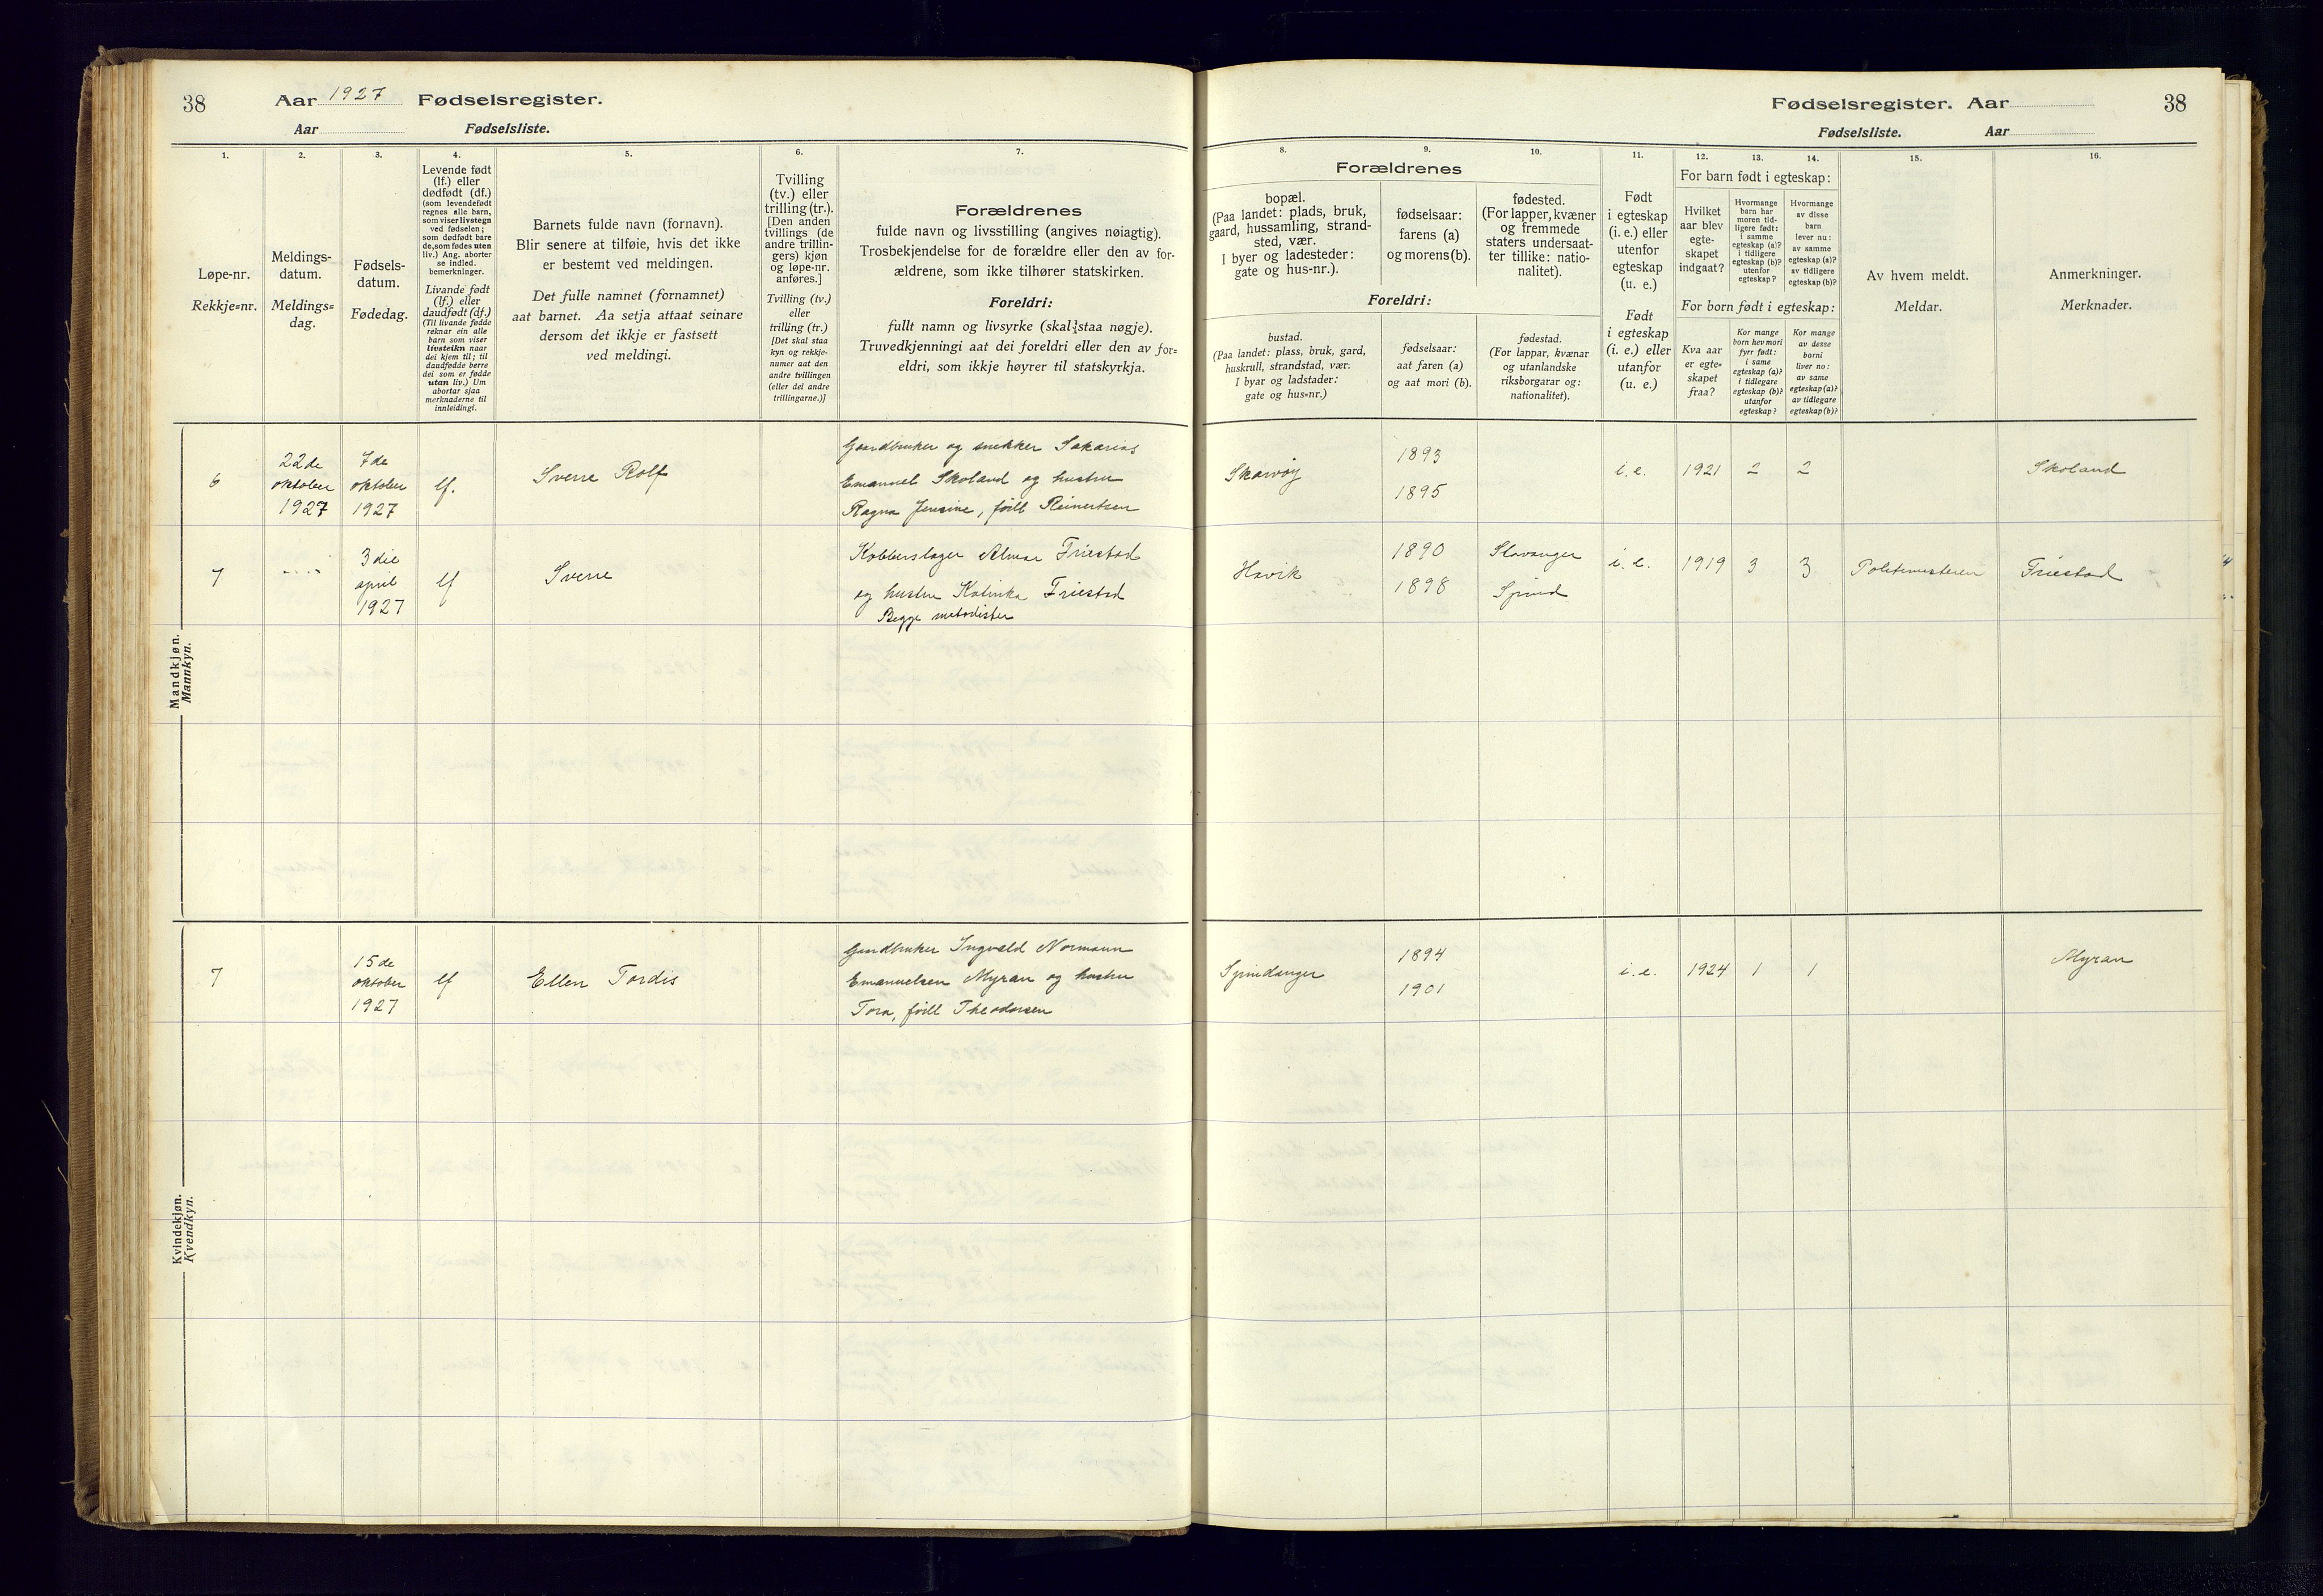 38
Aar 1927 Fødselsregister.
Aar Fødselsliste.
1.
Løpe-nr.
Rekkje=nr.
2.
Meldings-
datum.
Meldings=
dag.
3.
Fødsels-
datum.
Fødedag.
4.
Levende født
(lf.) eller
dødfødt (df.)
(som levendefødt
regnes alle barn,
som viser livstegn
ved fødselen;
som dødfødt bare
de, som fødes uten
liv.) Ang. aborter
se indled.
bemerkninger.
Livande født
(lf.) eller
daudfødt (df.)
(Til livande fødde
reknar ein alle
barn som viser
livsteikn naar
dei kjem til; til
daudfødde berre
dei som er fødde
utan liv.) Um
abortar sjaa
merknaderne til
innleidingi.
5.
Barnets fulde navn (fornavn).
Blir senere at tilføie, hvis det ikke
er bestemt ved meldingen.
Det fulle namnet (fornamnet)
aat barnet. Aa setja attaat seinare
dersom det ikkje er fastsett
ved meldingi.
6.
Tvilling
(tv.) eller
trilling (tr.).
[Den anden
tvillings (de
andre trillin-
gers) kjøn
og løpe-nr.
anføres.]
Tvilling (tv.)
eller
trilling (tr.)
[Det skal staa
kyn og rekkje-
numer aat den
andre tvillingen
(eller dei andre
trillingarne.)]
7.
Forældrenes
fulde navn og livsstilling (angives nøiagtig).
Trosbekjendelse for de forældre eller den av for-
ældrene, som ikke tilhører statskirken.
Foreldri:
fullt namn og livsyrke (skal staa nøgje).
Truvedkjenningi aat dei foreldri eller den av for=
eldri, som ikkje høyrer til statskyrkja.
Mandkjøn.
Mannkyn.
6
22de
oktober
1927
7de
oktober
1927
lf.
Sverre Rolf
Gaardbruker og snekker Sakarias
Emanuel Skoland og hustru
Ragna Jensine, født Reinertsen
7
3die
april
1927
lf
Sverre
Kobberslager Almar Friestad
og hustru Katinka Friestad
Begge metodister
Kvindekjøn.
Kvendkyn.
7
15de
oktober
1927
lf
Ellen Tordis
Gaardbruker Ingvald Normann
Emanuelsen Myran og hustru
Tora, født Theodorsen
Fødselsregister. Aar
38
Fødselsliste. Aar
Forældrenes
8.
bopæl.
(Paa landet: plads, bruk,
gaard, hussamling, strand-
sted, vær.
I byer og ladesteder:
gate og hus-nr.).
9.
fødselsaar:
farens (a)
og morens (b).
10.
fødested.
(For lapper, kvæner
og fremmede
staters undersaat-
ter tillike: natio-
nalitet).
Foreldri:
bustad.
(Paa landet: plass, bruk, gard,
huskrull, strandstad, vær.
I byar og ladstader:
gate og hus=nr.)
fødselsaar:
aat faren (a)
og aat mori (b).
fødestad.
(For lappar, kvænar
og utanlandske
riksborgarar og:
nationalitet).
11.
Født
i egteskap
(i. e.) eller
utenfor
egteskap
(u. e.)
Født
i egteskap
(i. e.) eller
utanfor
(u. e.)
12.
13.
14.
For barn født i egteskap:
Hvilket
aar blev
egte-
skapet
indgaat?
Hvormange
barn har
moren tid-
ligere født:
i samme
egteskap (a)?
i tidligere
egteskap (b)?
utenfor
egteskap?
Hvormange
av disse
barn
lever nu:
av samme
egteskap (a)?
av tidligere
egteskap (b)?
For born født i egteskap:
Kva aar
er egte-
skapet
fraa?
Kor mange
born hev mori
fyrr født:
i same
egteskap (a)?
i tidlegare
egteskap (b)?
utanfor
egteskap?
Kor mange
av desse
borni
liver no:
av same
egteskap (a)?
av tidlegare
egteskap (b)?
15.
Av hvem meldt.
Meldar.
16.
Anmerkninger.
Merknader.
Skarvøy
1893
1895
i. e.
1921
2
2
Skoland
Havik
1890
1898
Stavanger
Spind
i. e.
1919
3
3
Politimesteren
Friestad
Spindanger
1894
1901
i. e.
1924
1
1
Myran